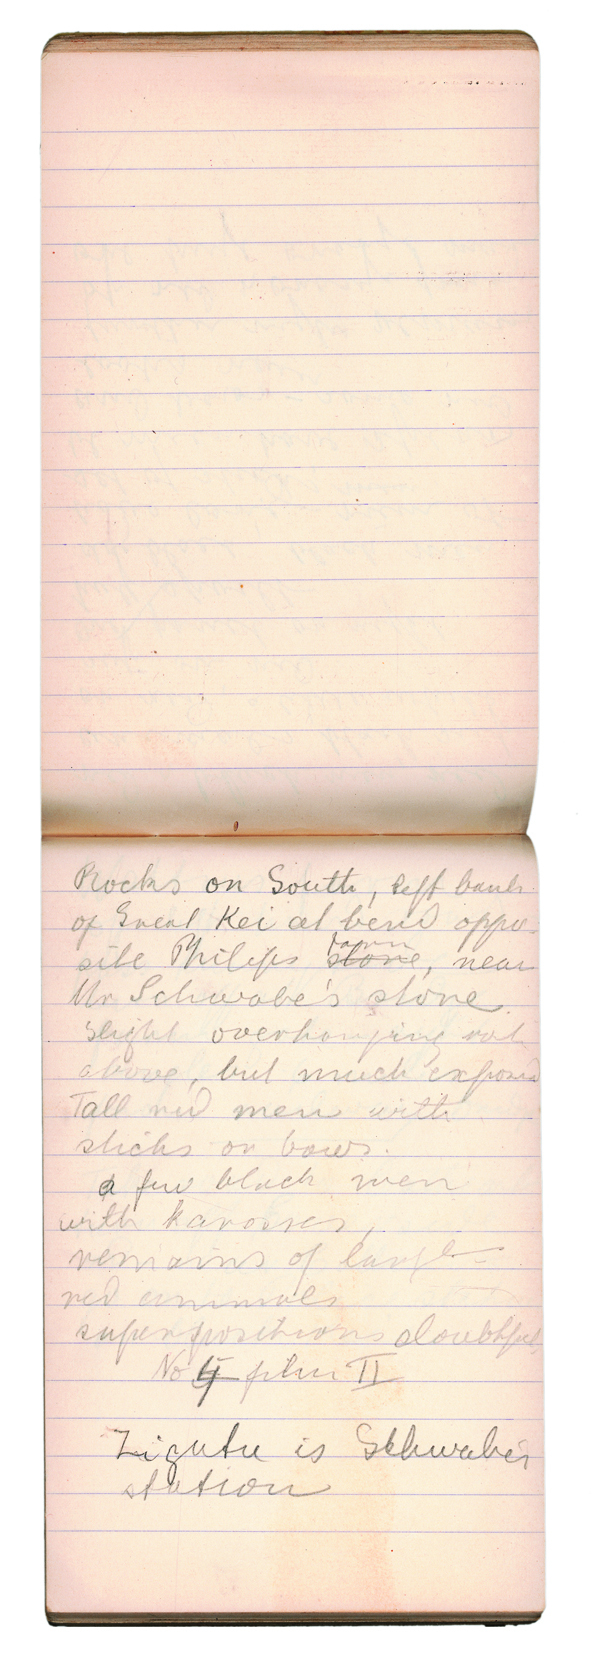 Rocks on South, left bank
of Great Kei at bend oppo-
site Philips farm stone, near
Mr Schwabe's stone
slight overhanging
above, but much exposed
Tall red men with
sticks or bows.
a few black men
with karosses,
remains of large
red animals
superpositions doubtful,
No film II
is Schwabe's
station